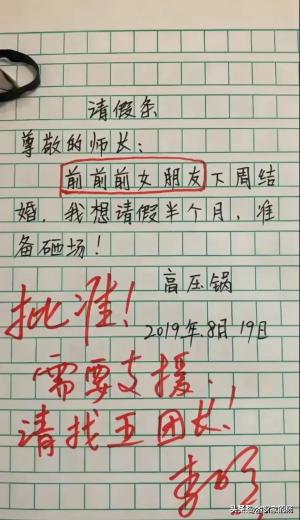 请假条
尊敬的师长：
前前前女朋友下周结
婚，我想请假半个月，准
备砸场！
高压锅
2019年8月19日
批准！
需要支援，
请找王团长！
李